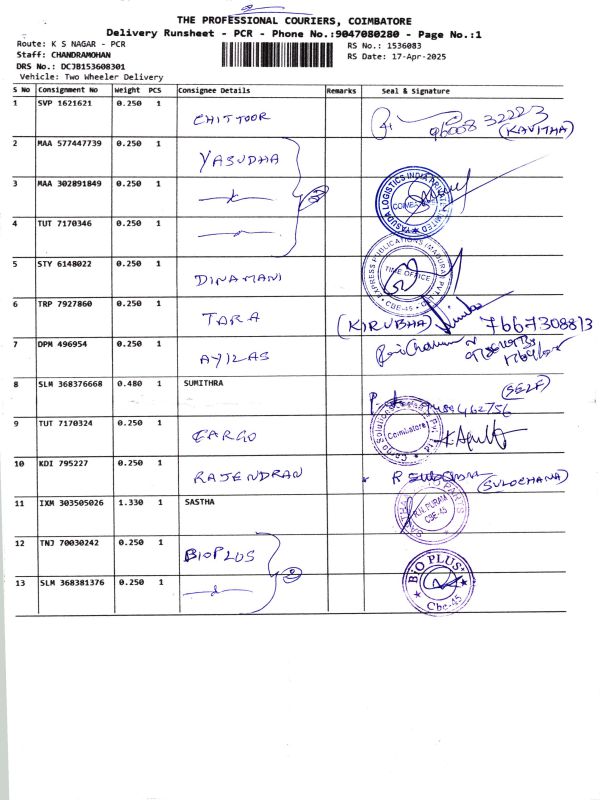 THE PROFESSIONAL COURIERS, COIMBATORE
Delivery Runsheet - PCR - Phone No.:9047080280 - Page No.:1
Route: K S NAGAR - PCR
RS No.: 1536083
Staff: CHANDRAMOHAN
RS Date: 17-Apr-2025
DRS No.: DCJB153608301
Vehicle: Two Wheeler Delivery
S No Consignment No Weight PCS Consignee Details Remarks Seal & Signature
1 SVP 1621621 0.250 1 CHITTOOR 32223 (KAVITHA)
2 MAA 577447739 0.250 1 YASUDHA
3 MAA 302891849 0.250 1
YASUDA LOGISTICS INDIA PRIVATE LIMITED
4 TUT 7170346 0.250 1
5 STY 6148022 0.250 1 DINAMANI
EXPRESS PUBLICATIONS (MADURAI) PVT LTD TIME OFFICE CBE-45
6 TRP 7927860 0.250 1 TARA (KIRUBHA) 7667308813
7 DPM 496954 0.250 1 AYILAS
8 SLM 368376668 0.480 1 SUMITHRA (SELF)
9 TUT 7170324 0.250 1 CARGO
Coimatore
10 KDI 795227 0.250 1 RAJENDRAN R (SULOCHANA)
11 IXM 303505026 1.330 1 SASTHA
CBE-45
12 TNJ 70030242 0.250 1 BIOPLUS
13 SLM 368381376 0.250 1
BiO PLUS Cbe-45